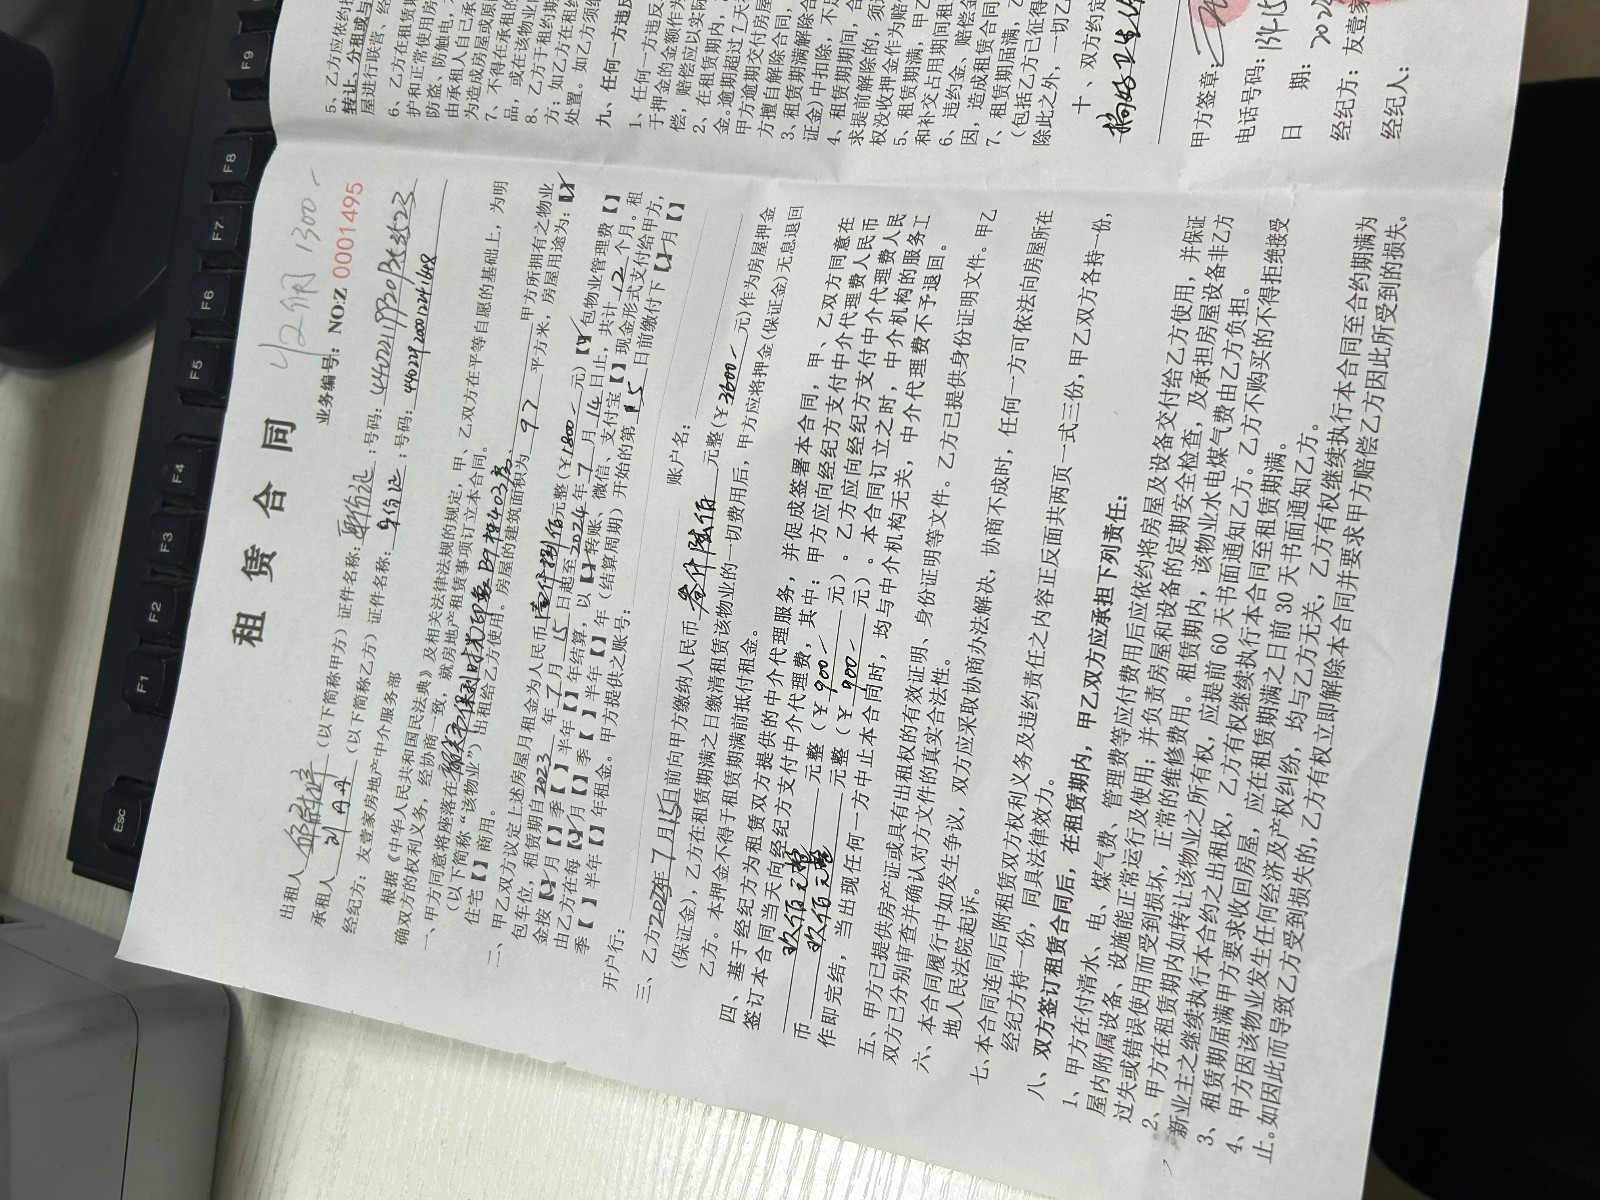 租 赁 合 同
业务编号：NO:Z 0001495
1300-
出租人（以下简称甲方）证件名称：身份证；号码：
承租人 刘丹丹（以下简称乙方）证件名称：身份证；号码：
经纪方：友壹家房地产中介服务部
根据《中华人民共和国民法典》及相关法律法规的规定，甲、乙双方在平等自愿的基础上，为明
确双方的权利义务，经协商一致，就房地产租赁事项订立本合同。
一、甲方同意将座落在 甲方所拥有之物业
（以下简称“该物业”）出租给乙方使用。房屋的建筑面积为 97 平方米，房屋用途为：【✓】
住宅【 】商用。
二、甲乙双方议定上述房屋月租金为人民币壹仟捌佰元整（¥1800-元）【✓】包物业管理费【 】
包车位，租赁期自2023年7月15日起至2024年7月14日止，共计12个月。租
金按【✓】月【 】季【 】半年【 】年结算，以【✓】转账、微信、支付宝【 】现金形式支付给甲方，
由乙方在每【✓】月【 】季【 】半年【 】年（结算周期）开始的第15日前缴付下【✓】月【 】
季【 】半年【 】年租金。甲方提供之账号：
开户行： 账户名：
三、乙方2023年7月15日前向甲方缴纳人民币叁仟陆佰元整（¥3600-元）作为房屋押金
（保证金），乙方在租赁期满之日缴清租赁该物业的一切费用后，甲方应将押金（保证金）无息退回
乙方。本押金不得于租赁期满前抵付租金。
四、基于经纪方为租赁双方提供的中介代理服务，并促成签署本合同，甲、乙双方同意在
签订本合同当天向经纪方支付中介代理费，其中：甲方应向经纪方支付中介代理费人民币
玖佰元整元整（¥900-元）。乙方应向经纪方支付中介代理费人民
币玖佰元整元整（¥900-元）。本合同订立之时，中介机构的服务工
作即完结，当出现任何一方中止本合同时，均与中介机构无关，中介代理费不予退回。
五、甲方已提供房产证或具有出租权的有效证明、身份证明等文件。乙方已提供身份证明文件。甲乙
双方已分别审查并确认对方文件的真实合法性。
六、本合同履行中如发生争议，双方应采取协商办法解决，协商不成时，任何一方可依法向房屋所在
地人民法院起诉。
七、本合同连同后附租赁双方权利义务及违约责任之内容正反面共两页一式三份，甲乙双方各持一份，
经纪方持一份，同具法律效力。
八、双方签订租赁合同后，在租赁期内，甲乙双方应承担下列责任：
1、甲方在付清水、电、煤气费、管理费等应付费用后应依约将房屋及设备交付给乙方使用，并保证
屋内附属设备、设施能正常运行及使用；并负责房屋和设备的定期安全检查，及承担房屋设备非乙方
过失或错误使用而受到损坏，正常的维修费用。租赁期内，该物业水电煤气费由乙方负担。
2、甲方在租赁期内如转让该物业之所有权，应提前 60 天书面通知乙方。乙方不购买的不得拒绝接受
新业主之继续执行本合约之出租权，乙方有权继续执行本合同至租赁期满。
3、租赁期届满甲方要求收回房屋，应在租赁期满之日前 30 天书面通知乙方。
4、甲方因该物业发生任何经济及产权纠纷，均与乙方无关，乙方有权继续执行本合同至合约期满为
止。如因此而导致乙方受到损失的，乙方有权立即解除本合同并要求甲方赔偿乙方因此所受到的损失。
5、乙方应依约
转让、分租或与
屋进行联营、经
6、乙方在租赁期
护和正常使用房
防盗、防触电，
由承租人自己承
为造成房屋或原
7、不得在承租的
品，或在该物业
8、乙方于租约期
方；如乙方在租约
处置。如乙方须
九、任何一方违反
1、任何一方违反
于押金的金额作为
偿，赔偿应以实际
2、在租赁期内，
金。逾期超过 7 天
甲方逾期交付房屋
方擅自解除合同，
3、租赁期满解除合
证金）中扣除，不足
4、租赁期期间，合
求提前解除的，须
权没收押金作为赔
5、租赁期满，甲乙
和补交占用期间租
6、违约金、赔偿金
因，造成租赁合同
7、租赁期届满，乙
（包括乙方已征得
除此之外，一切乙
十、双方约定
搞好卫生
甲方签章：
电话号码：
日 期：
经纪方：友壹家
经纪人：
Esc
F1
F2
F3
F4
F5
F6
F7
F8
F9